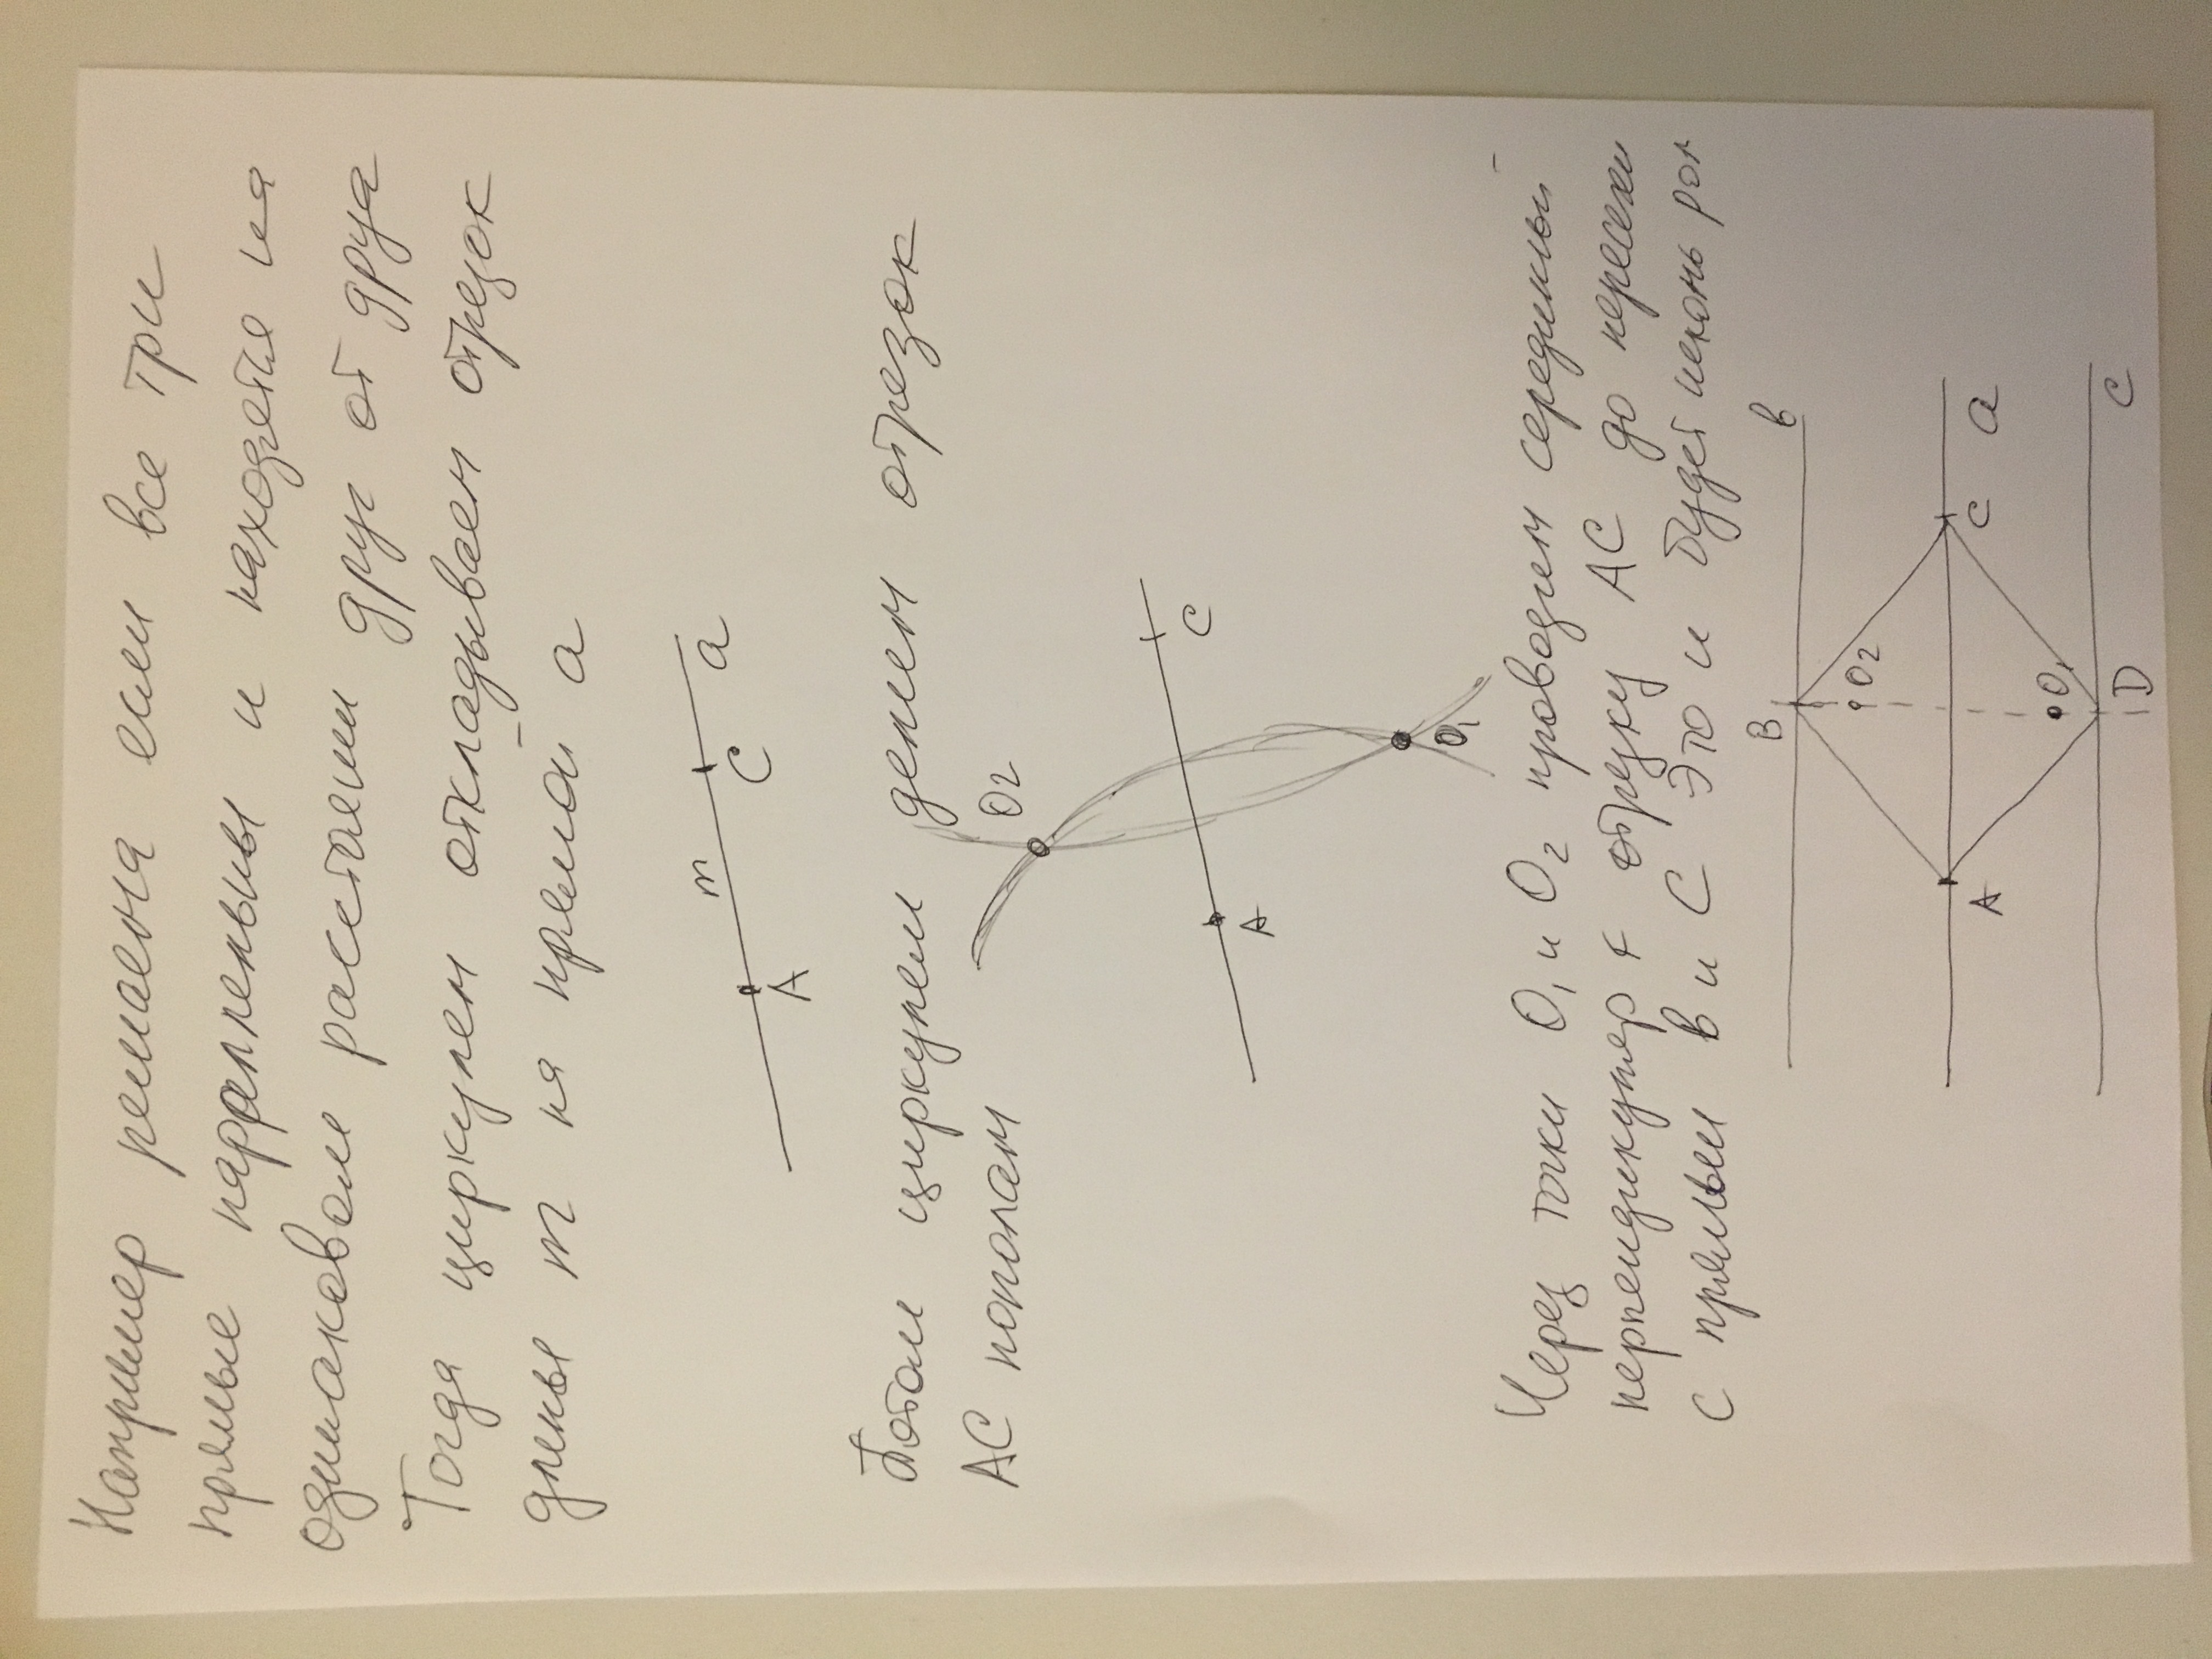 Например решаема если все три
прямые паррлельны и находятя на
одинаковом расстоянии друг от друга
Тогда циркулем откладываем отрезок
длины m на прямой a
m
A
C
a
Потом циркулем делим отрезок
AC пополам
O2
A
C
O1
Через точки O1 и O2 проводим серединый
перпендикуляр к отрезку AC до пересеки
с прямыми в и С это и будет искомы ром
B
в
O2
A
C
a
O1
D
C